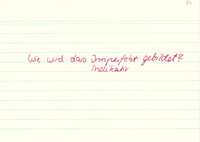 Wie wird das Imperfekt gebildet?
Indikativ